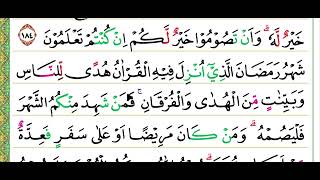 خَيْرٌ لَّهٗ ؕ وَاَنْ تَصُوْمُوْا خَيْرٌ لَّكُمْ اِنْ كُنْتُمْ تَعْلَمُوْنَ ﴿۱۸۴﴾
شَهْرُ رَمَضَانَ الَّذِيْٓ اُنْزِلَ فِيْهِ الْقُرْاٰنُ هُدًى لِّلنَّاسِ
وَبَيِّنٰتٍ مِّنَ الْهُدٰى وَالْفُرْقَانِ ۚ فَمَنْ شَهِدَ مِنْكُمُ الشَّهْرَ
فَلْيَصُمْهُ ؕ وَمَنْ كَانَ مَرِيْضًا اَوْ عَلٰى سَفَرٍ فَعِدَّةٌ